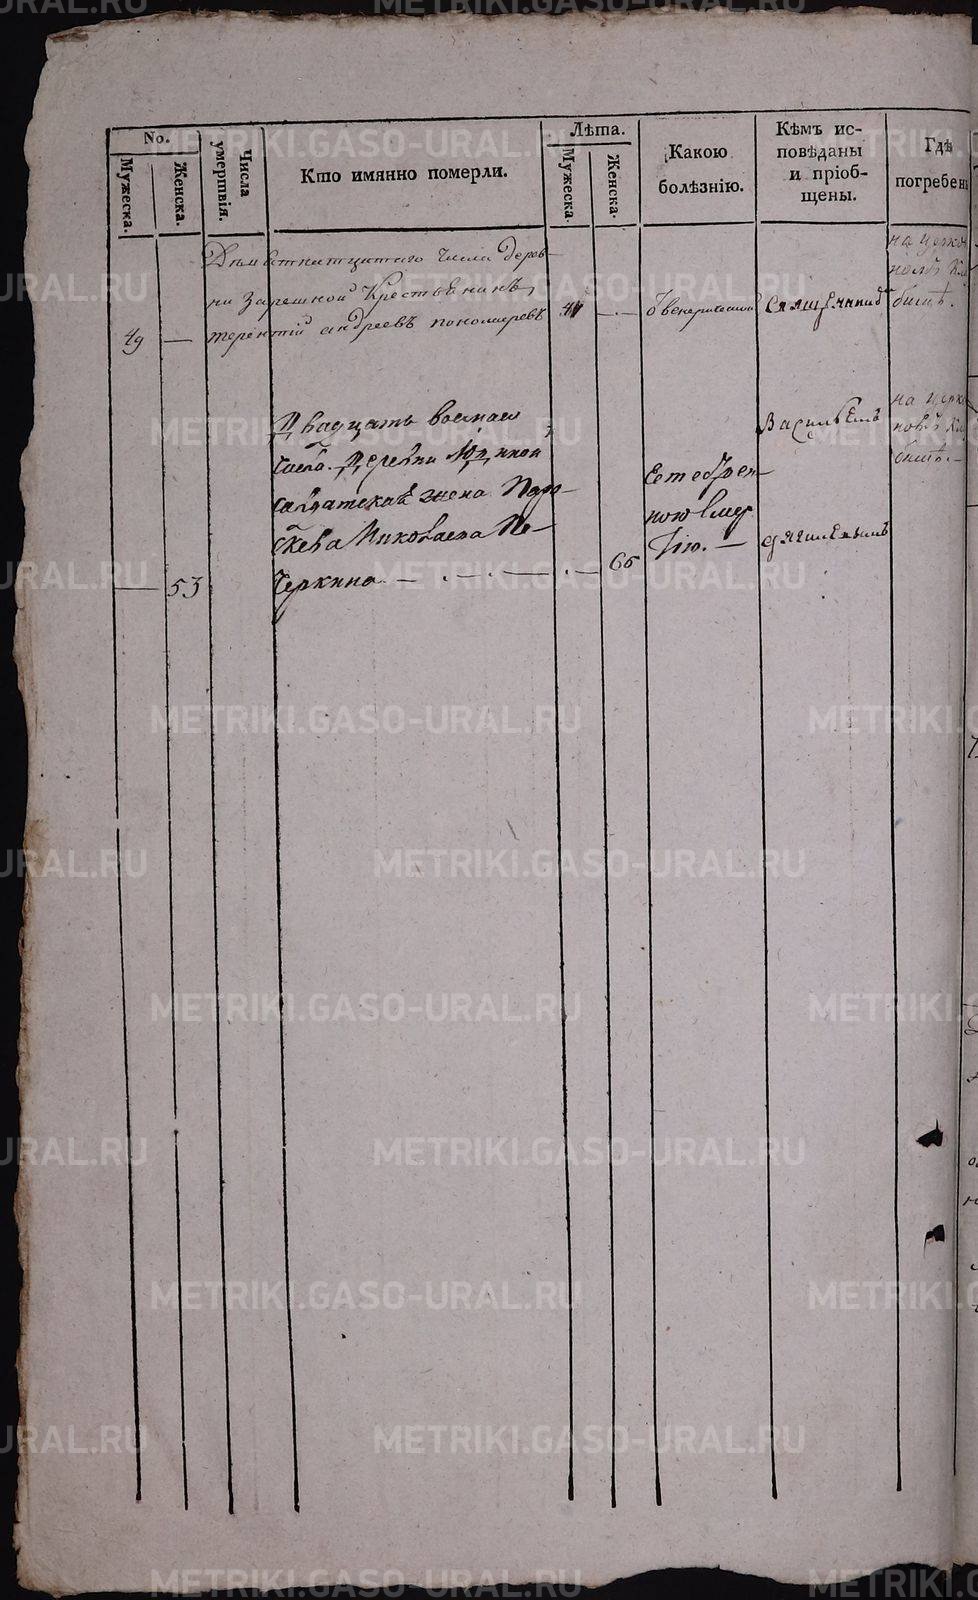 No.
Мужеска.
Женска.
Числа умертвія.
Кто имянно померли.
Лѣта.
Мужеска.
Женска.
Какою
болѣзнію.
Кѣмъ ис-
повѣданы
и пріоб-
щены.
Гдѣ
погребены
Девятнатцатаго числа дерев-
ни Зарешной Крестьянинъ
терентій андреевъ пономаревъ
49
священникъ
на церков
номъ кла
бищѣ.
Двадцать восьмаго
числа. Деревни
салдатская жена
Николаева Пе-
черкина
53
66
Естествен-
ною смер
тію.
Василіемъ
на церко
новѣ кла
бищѣ
METRIKI.GASO-URAL.RU